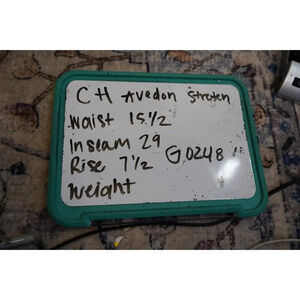 CH Avedon Straten
Waist 15 1/2
Inseam 29
Rise 7 1/2 G0248
Weight